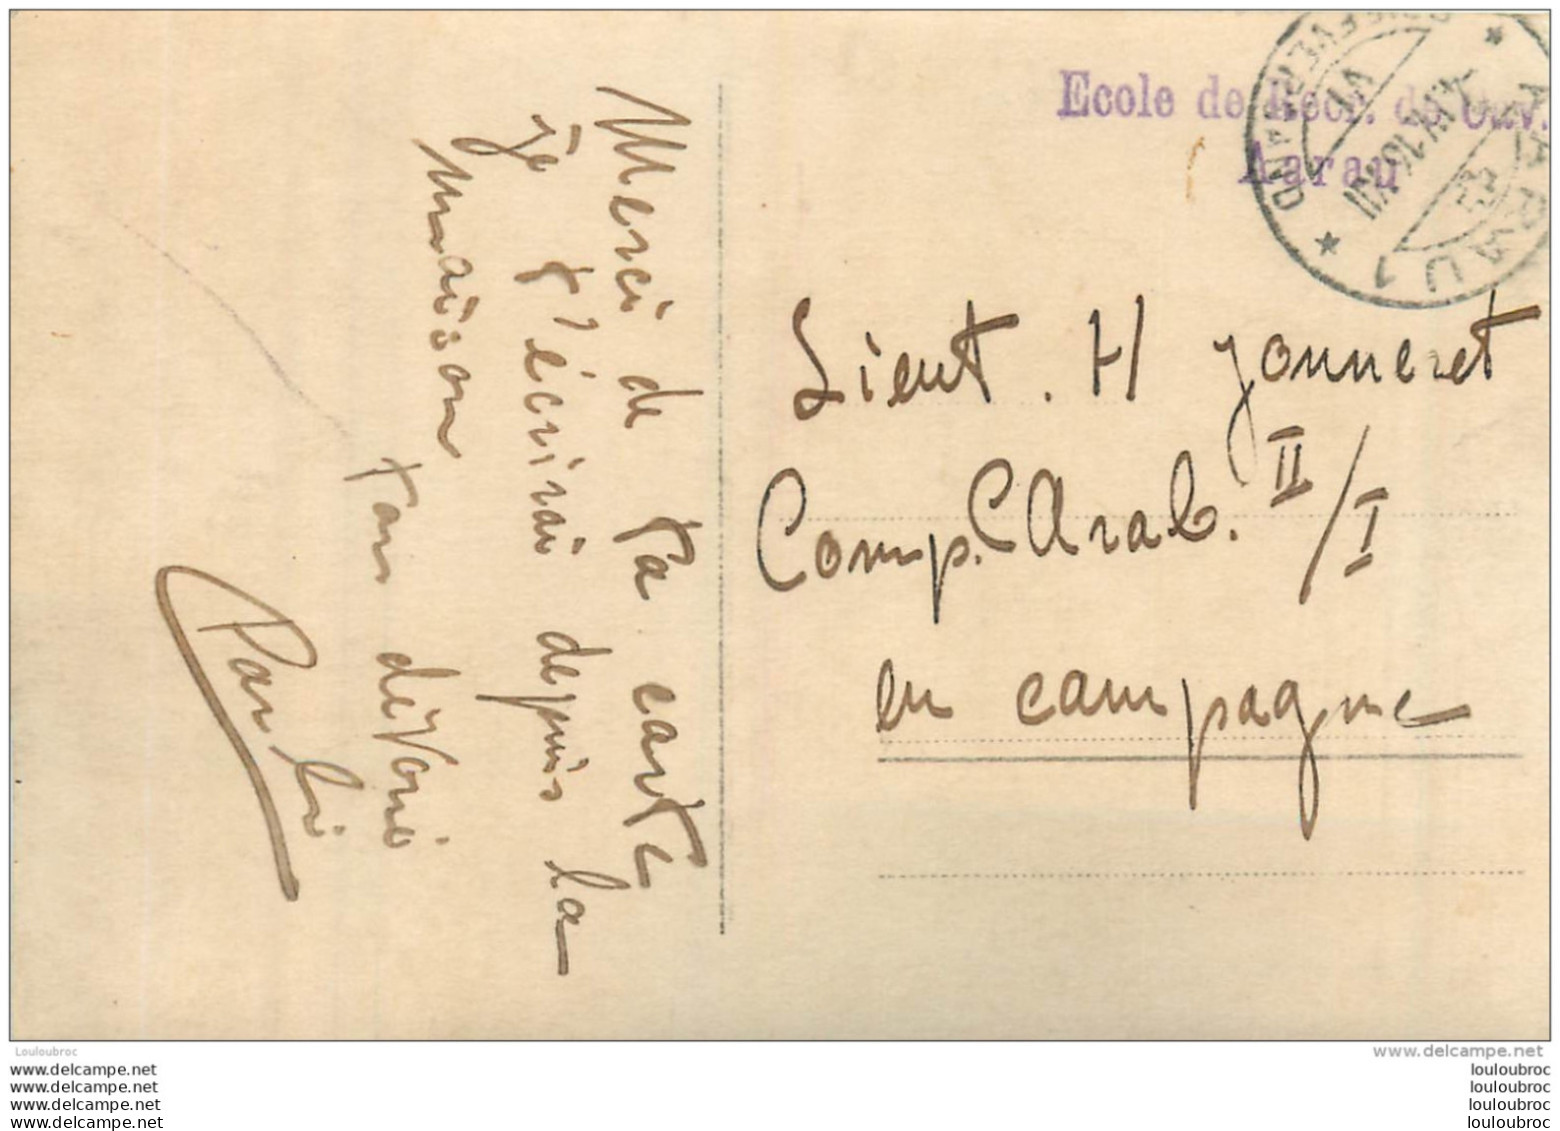 Ecole de Recr. de Cav.
Aarau
AARAU 1
BRIEFVERSAND
VI
1.IV.16.XII
Merci de ta carte
je t'écrirai depuis la
maison
ton dévoué
Lieut. H Jonneret
Comp. Carab. II/I
en campagne
Louloubroc
www.delcampe.net
www.delcampe.net
www.delcampe.net
www.delcampe.net
www.delcampe.net
louloubroc
louloubroc
louloubroc
louloubroc